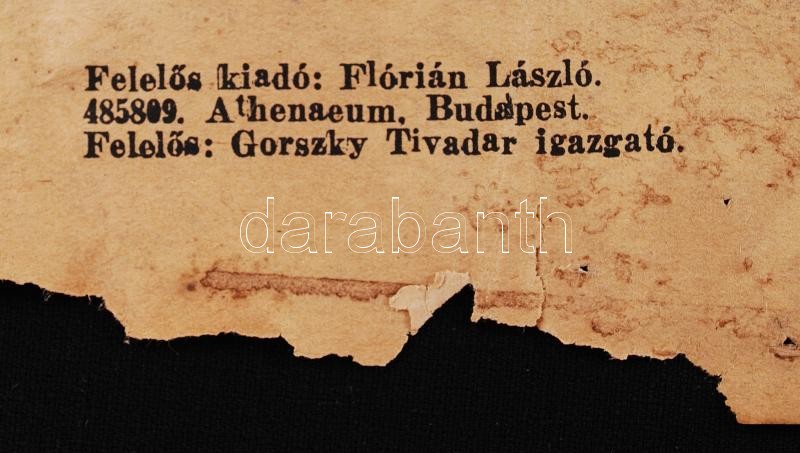 Felelős kiadó: Flórián László.
485809. Athenaeum, Budapest.
Felelős: Gorszky Tivadar igazgató.
darabanth